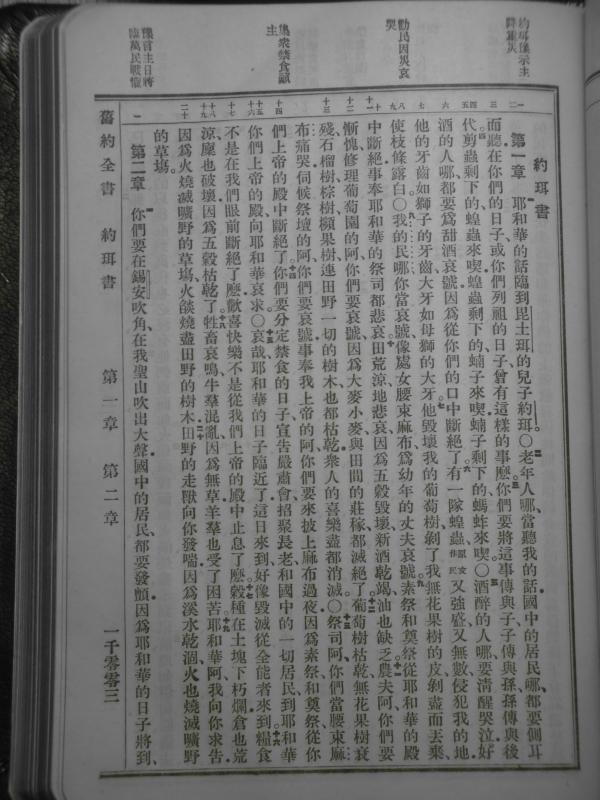 約珥豫示主
降重災
勸民因災哀
哭
集衆禁食籲
主
豫言主日將
臨萬民戰慄
約珥書
第一章 耶和華的話臨到毘土珥的兒子約珥○老年人哪、當聽我的話國中的居民哪、都要側耳
而聽在你們的日子、或你們列祖的日子、曾有這樣的事麼你們要將這事傳與子、子傳與孫、孫傳與後
代剪蟲剩下的蝗蟲來喫、蝗蟲剩下的蝻子來喫、蝻子剩下的螞蚱來喫○酒醉的人哪、要清醒哭泣、好
酒的人哪、都要爲甜酒哀號因爲從你們的口中斷絕了有一隊蝗蟲原文作民又強盛又無數侵犯我的地、
他的牙齒如獅子的牙齒、大牙如母獅的大牙他毀壞我的葡萄樹剝了我無花果樹的皮、剝盡而丟棄、
使枝條露白○我的民哪、你當哀號、像處女腰束麻布、爲幼年的丈夫哀號素祭和奠祭、從耶和華的殿
中斷絕事奉耶和華的祭司都悲哀田荒涼、地悲哀因爲五穀毀壞、新酒乾竭、油也缺乏農夫阿、你們要
慚愧修理葡萄園的阿、你們要哀號因爲大麥小麥與田間的莊稼都滅絕了葡萄樹枯乾、無花果樹衰
殘石榴樹棕樹蘋果樹連田野一切的樹木也都枯乾衆人的喜樂盡都消滅○祭司阿、你們當腰束麻
布痛哭伺候祭壇的阿、你們要哀號事奉我上帝的阿、你們要來披上麻布過夜因爲素祭和奠祭從你
們上帝的殿中斷絕了你們要分定禁食的日子宣告嚴肅會招聚長老、和國中的一切居民到耶和華
你們上帝的殿、向耶和華哀求○哀哉、耶和華的日子臨近了這日來到好像毀滅從全能者來到糧食
不是在我們眼前斷絕了麼、歡喜快樂、不是從我們上帝的殿中止息了麼穀種在土塊下朽爛倉也荒
涼、廩也破壞因爲五穀枯乾了牲畜哀鳴牛羣混亂因爲無草羊羣也受了困苦耶和華阿、我向你求告
因爲火燒滅曠野的草場、火燄燒盡田野的樹木田野的走獸向你發喘因爲溪水乾涸火也燒滅曠野
的草場。
第二章 你們要在錫安吹角、在我聖山吹出大聲國中的居民、都要發顫因爲耶和華的日子將到、
舊約全書 約珥書 第一章 第二章 一千零零三